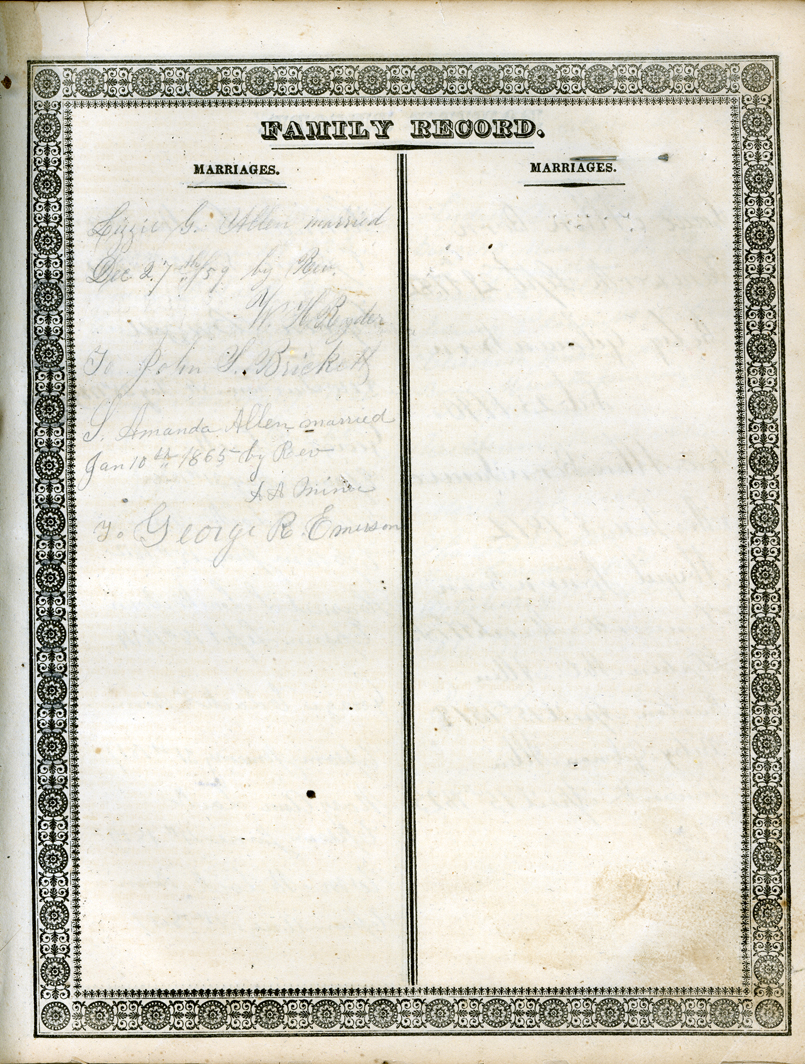 FAMILY RECORD.
MARRIAGES.
Lizzie G. Allen married
Dec 27th/59 by Rev.
W. H. Ryder
To John S. Brickett
S. Amanda Allen married
Jan 10th 1865 by Rev
A A Miner
To George R. Emerson
MARRIAGES.